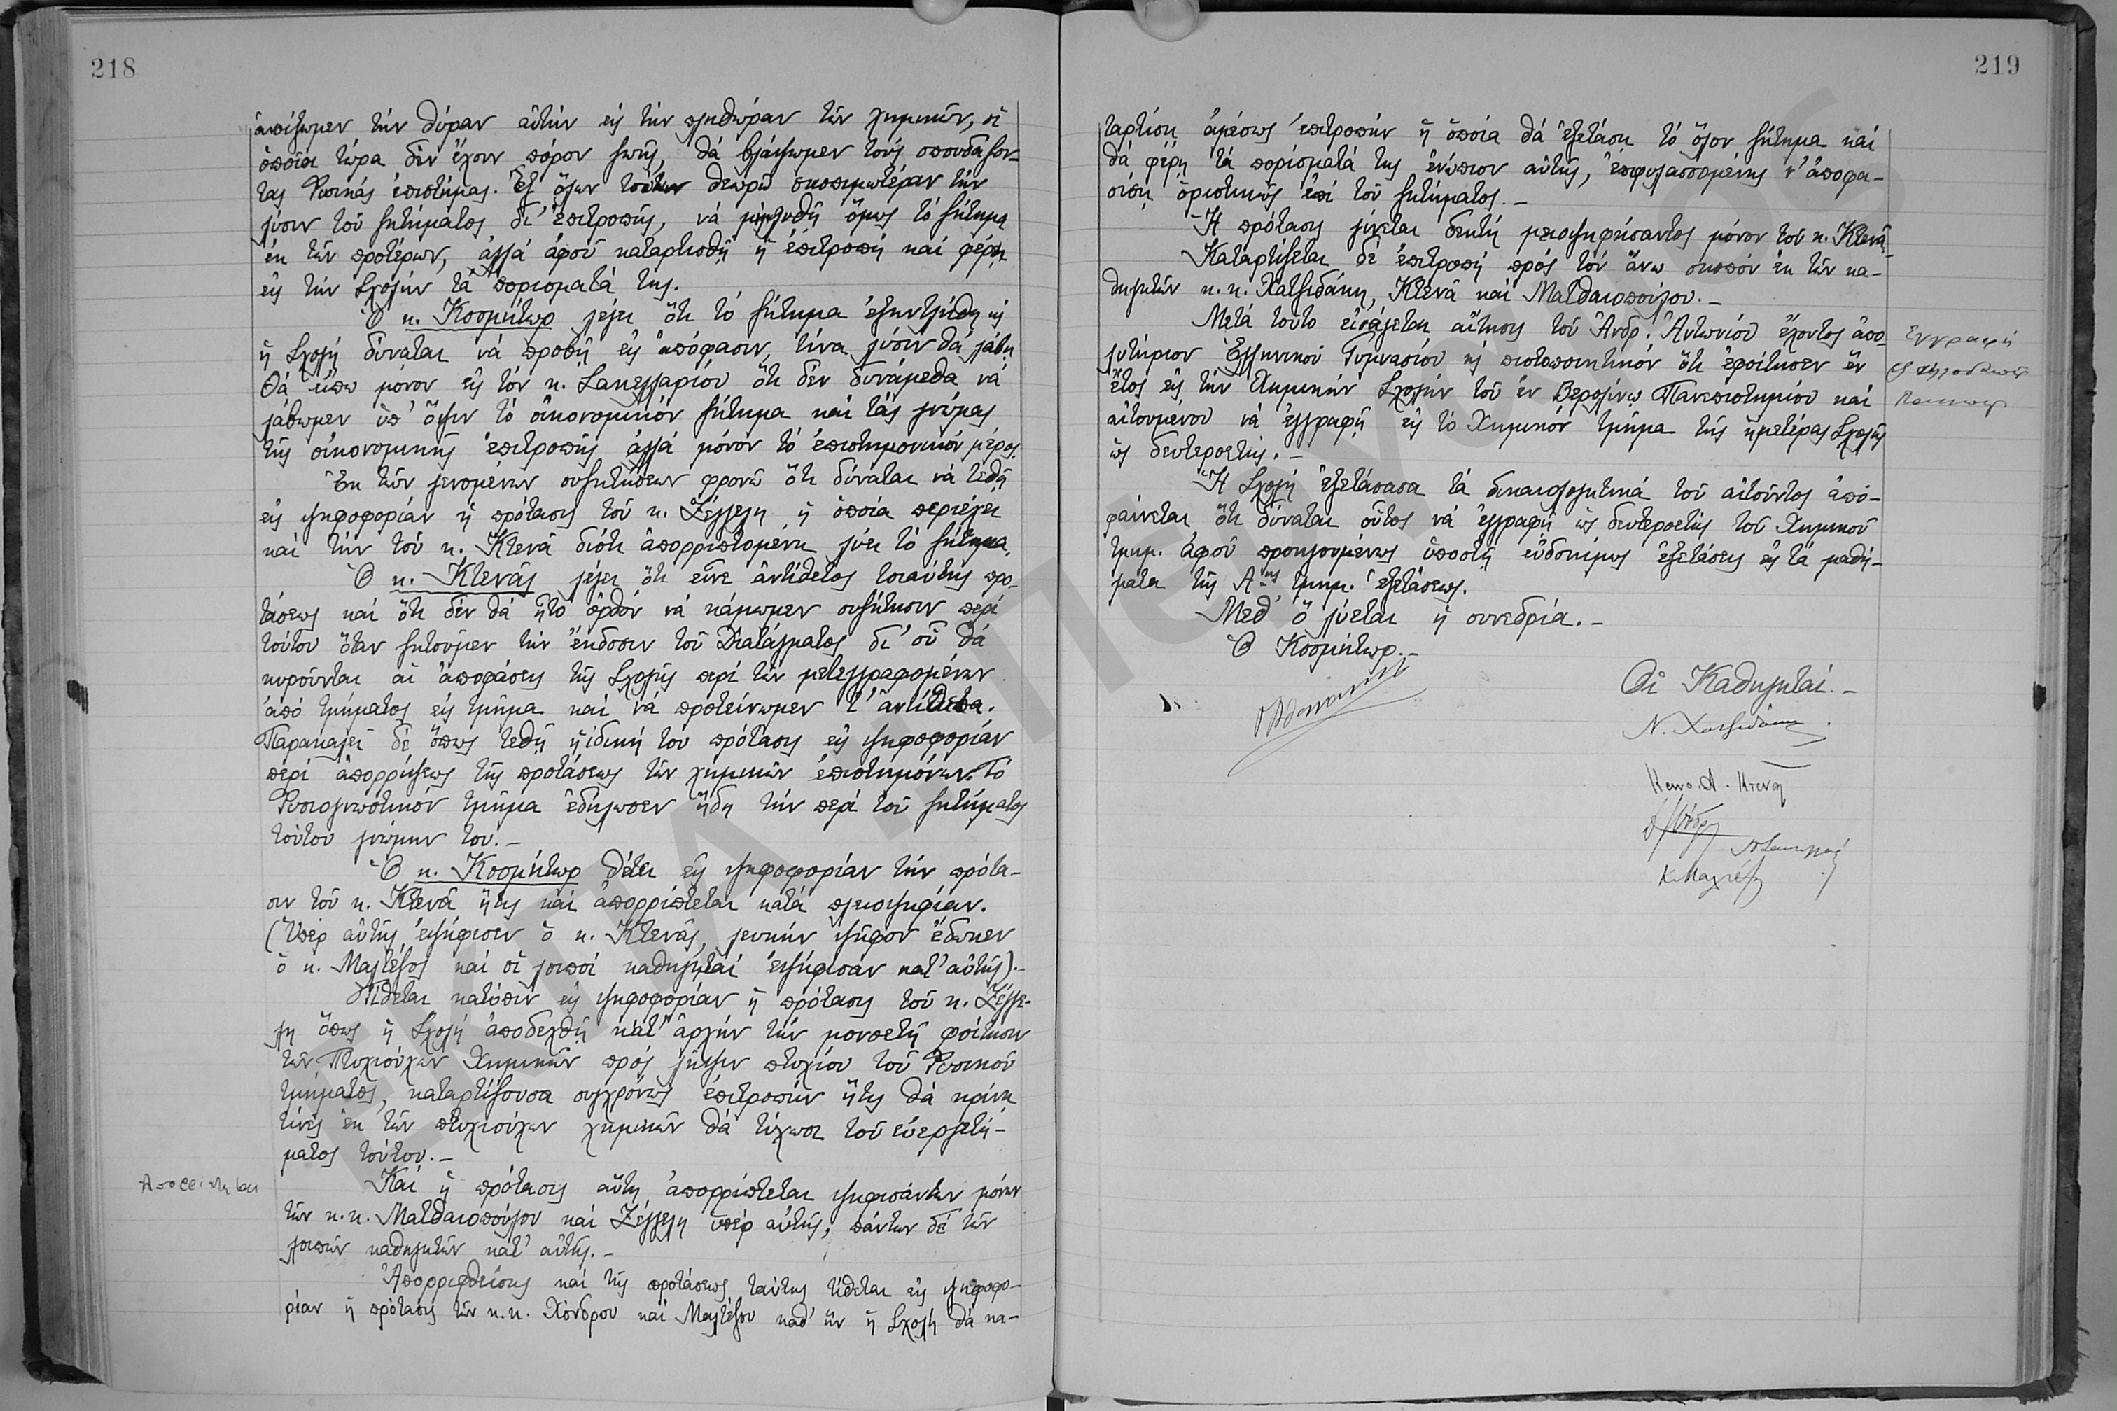 218
ἀνοίξωμεν τὴν θύραν αὐτὴν εἰς τὴν πληθώραν τῶν χημικῶν, οἱ
ὁποῖοι τώρα δὲν ἔχουν πόρον ζωῆς, θὰ βλάψωμεν τοὺς σπουδάζον-
τας Φυσικὰς ἐπιστήμας. Ἐξ ὅλων τούτων θεωρῶ σκοπιμωτέραν τὴν
λύσιν τοῦ ζητήματος δι' ἐπιτροπῆς, νὰ μὴ λυθῇ ὅμως τὸ ζήτημα
ἐκ τῶν προτέρων, ἀλλὰ ἀφοῦ καταρτισθῇ ἡ ἐπιτροπὴ καὶ φέρῃ
εἰς τὴν Σχολὴν τὰ πορίσματά της.
Ὁ κ. Κοσμήτωρ λέγει ὅτι τὸ ζήτημα ἐξηντλήθη κι
ἡ Σχολὴ δύναται νὰ προβῇ εἰς ἀπόφασιν, τίνα λύσιν θὰ λάβῃ
Θὰ εἴπω μόνον εἰς τὸν κ. Σακελλαρίου ὅτι δὲν δυνάμεθα νὰ
λάβωμεν ὑπ' ὄψιν τὸ οἰκονομικὸν ζήτημα καὶ τὰς γνώμας
τῆς οἰκονομικῆς ἐπιτροπῆς ἀλλὰ μόνον τὸ ἐπιστημονικὸν μέρος.
Ἐκ τῶν γενομένων συζητήσεων φρονῶ ὅτι δύναται νὰ τεθῇ
εἰς ψηφοφορίαν ἡ πρότασις τοῦ κ. Ζέγγελη ἡ ὁποία περιέχει
καὶ τὴν τοῦ κ. Κτενᾶ διότι ἀπορριπτομένη λύει τὸ ζήτημα.
Ὁ κ. Κτενᾶς λέγει ὅτι εἶνε ἀντίθετος τοιαύτης προ-
τάσεως καὶ ὅτι δὲν θὰ ἦτο ὀρθὸν νὰ κάμωμεν συζήτησιν περὶ
τούτου ὅταν ζητοῦμεν τὴν ἔκδοσιν τοῦ Διατάγματος δι' οὗ θὰ
κυροῦνται αἱ ἀποφάσεις τῆς Σχολῆς περὶ τῶν μετεγγραφομένων
ἀπὸ τμήματος εἰς τμῆμα καὶ νὰ προτείνωμεν τ' ἀντίθετα.
Παρακαλεῖ δὲ ὅπως τεθῇ ἡ ἰδική του πρότασις εἰς ψηφοφορίαν
περὶ ἀπορρίψεως τῆς προτάσεως τῶν χημικῶν ἐπιστημόνων. Τὸ
Φυσιογνωστικὸν τμῆμα ἐδήλωσεν ἤδη τὴν περὶ τοῦ ζητήματος
τούτου γνώμην του.–
Ὁ κ. Κοσμήτωρ θέτει εἰς ψηφοφορίαν τὴν πρότα-
σιν τοῦ κ. Κτενᾶ ἥτις καὶ ἀπορρίπτεται κατὰ πλειοψηφίαν.
(Ὑπὲρ αὐτῆς ἐψήφισεν ὁ κ. Κτενᾶς, λευκὴν ψῆφον ἔδωκεν
ὁ κ. Μαλτέζος καὶ οἱ λοιποὶ καθηγηταὶ ἐψήφισαν κατ' αὐτῆς).–
Τίθεται κατόπιν εἰς ψηφοφορίαν ἡ πρότασις τοῦ κ. Ζέγγε-
λη ὅπως ἡ Σχολὴ ἀποδεχθῇ κατ' ἀρχὴν τὴν μονοετῆ φοίτησιν
τῶν Πτυχιούχων Χημικῶν πρὸς λῆψιν πτυχίου τοῦ Φυσικοῦ
τμήματος, καταρτίζουσα συγχρόνως ἐπιτροπὴν ἥτις θὰ κρίνῃ
τίνες ἐκ τῶν πτυχιούχων χημικῶν θὰ τύχωσι τοῦ εὐεργετή-
ματος τούτου.–
Καὶ ἡ πρότασις αὕτη ἀπορρίπτεται ψηφισάντων μόνον
τῶν κ.κ. Ματθαιοπούλου καὶ Ζέγγελη ὑπὲρ αὐτῆς, πάντων δὲ τῶν
λοιπῶν καθηγητῶν κατ' αὐτῆς.–
Ἀπορριφθείσης καὶ τῆς προτάσεως ταύτης τίθεται εἰς ψηφοφο-
ρίαν ἡ πρότασις τῶν κ.κ. Χόνδρου καὶ Μαλτέζου καθ' ἣν ἡ Σχολὴ θὰ κα-
219
ταρτίσῃ ἀμέσως ἐπιτροπὴν ἡ ὁποία θὰ ἐξετάσῃ τὸ ὅλον ζήτημα καὶ
θὰ φέρῃ τὰ πορίσματά της ἐνώπιον αὐτῆς, ἐπιφυλασσομένης ν' ἀποφα-
σίσῃ ὁριστικῶς ἐπὶ τοῦ ζητήματος.–
Ἡ πρότασις γίνεται δεκτὴ μειοψηφήσαντος μόνον τοῦ κ. Κτενᾶ.–
Καταρτίζεται δὲ ἐπιτροπὴ πρὸς τὸν ἄνω σκοπὸν ἐκ τῶν κα-
θηγητῶν κ.κ. Χατζιδάκη, Κτενᾶ καὶ Ματθαιοπούλου.–
Μετὰ τοῦτο εἰσάγεται αἴτησις τοῦ Ἀνδρ. Ἀντωνίου ἔχοντος ἀπο-
λυτήριον Ἑλληνικοῦ Γυμνασίου κὴ πιστοποιητικὸν ὅτι ἐφοίτησεν ἓν
ἔτος εἰς τὴν Χημικὴν Σχολὴν τοῦ ἐν Βερολίνῳ Πανεπιστημίου καὶ
αἰτουμένου νὰ ἐγγραφῇ εἰς τὸ Χημικὸν τμῆμα τῆς ἡμετέρας Σχολῆς
ὡς δευτεροετής.–
Ἐγγραφὴ
ἐξ ἀλλοδαπῶν
Ἡ Σχολὴ ἐξετάσασα τὰ δικαιολογητικὰ τοῦ αἰτοῦντος ἀπο-
φαίνεται ὅτι δύναται οὗτος νὰ ἐγγραφῇ ὡς δευτεροετὴς τοῦ Χημικοῦ
τμημ. ἀφοῦ προηγουμένως ὑποστῇ εὐδοκίμως ἐξετάσεις εἰς τὰ μαθή-
ματα τῆς Α-ης τμημ. ἐξετάσεως.
Μεθ' ὃ λύεται ἡ συνεδρία.–
Ὁ Κοσμήτωρ.–
Οἱ Καθηγηταί.–
Ν. Χατζιδάκις
Κωνσ. Α. Κτενᾶς
Κ. Μαλτέζος